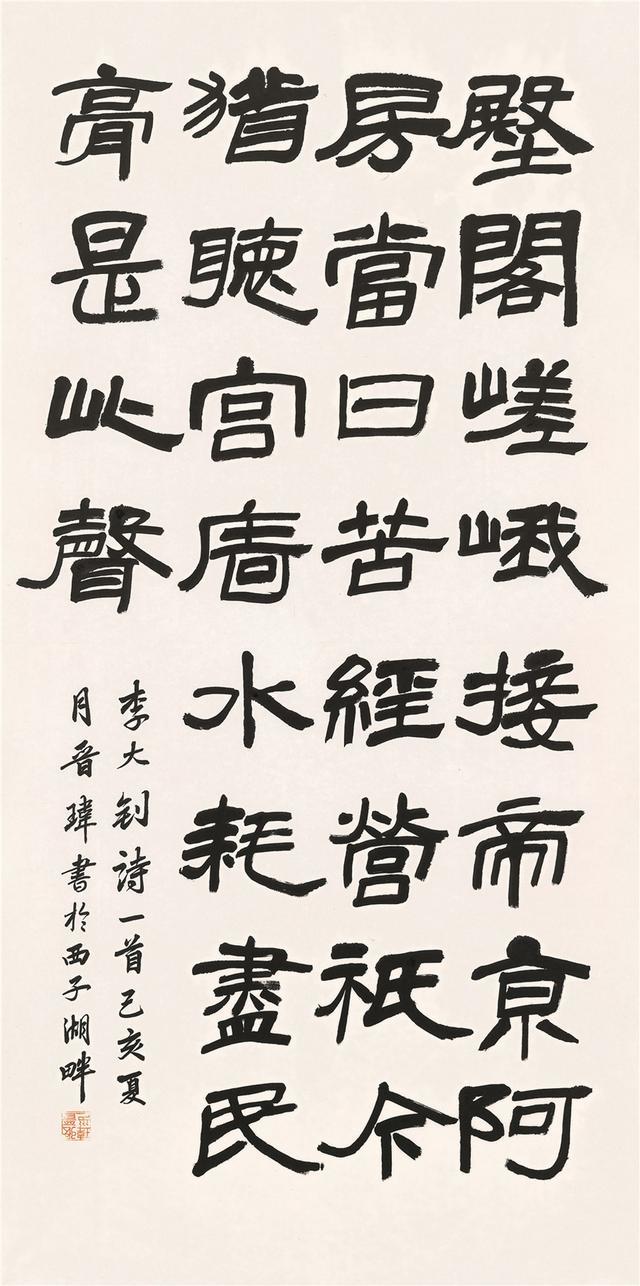 壂閣嵯峨接帝亰阿
房當日苦經營祇今
猶聽宮廧水耗盡民
膏是此聲
李大釗詩一首己亥夏
月晋瑋書於西子湖畔